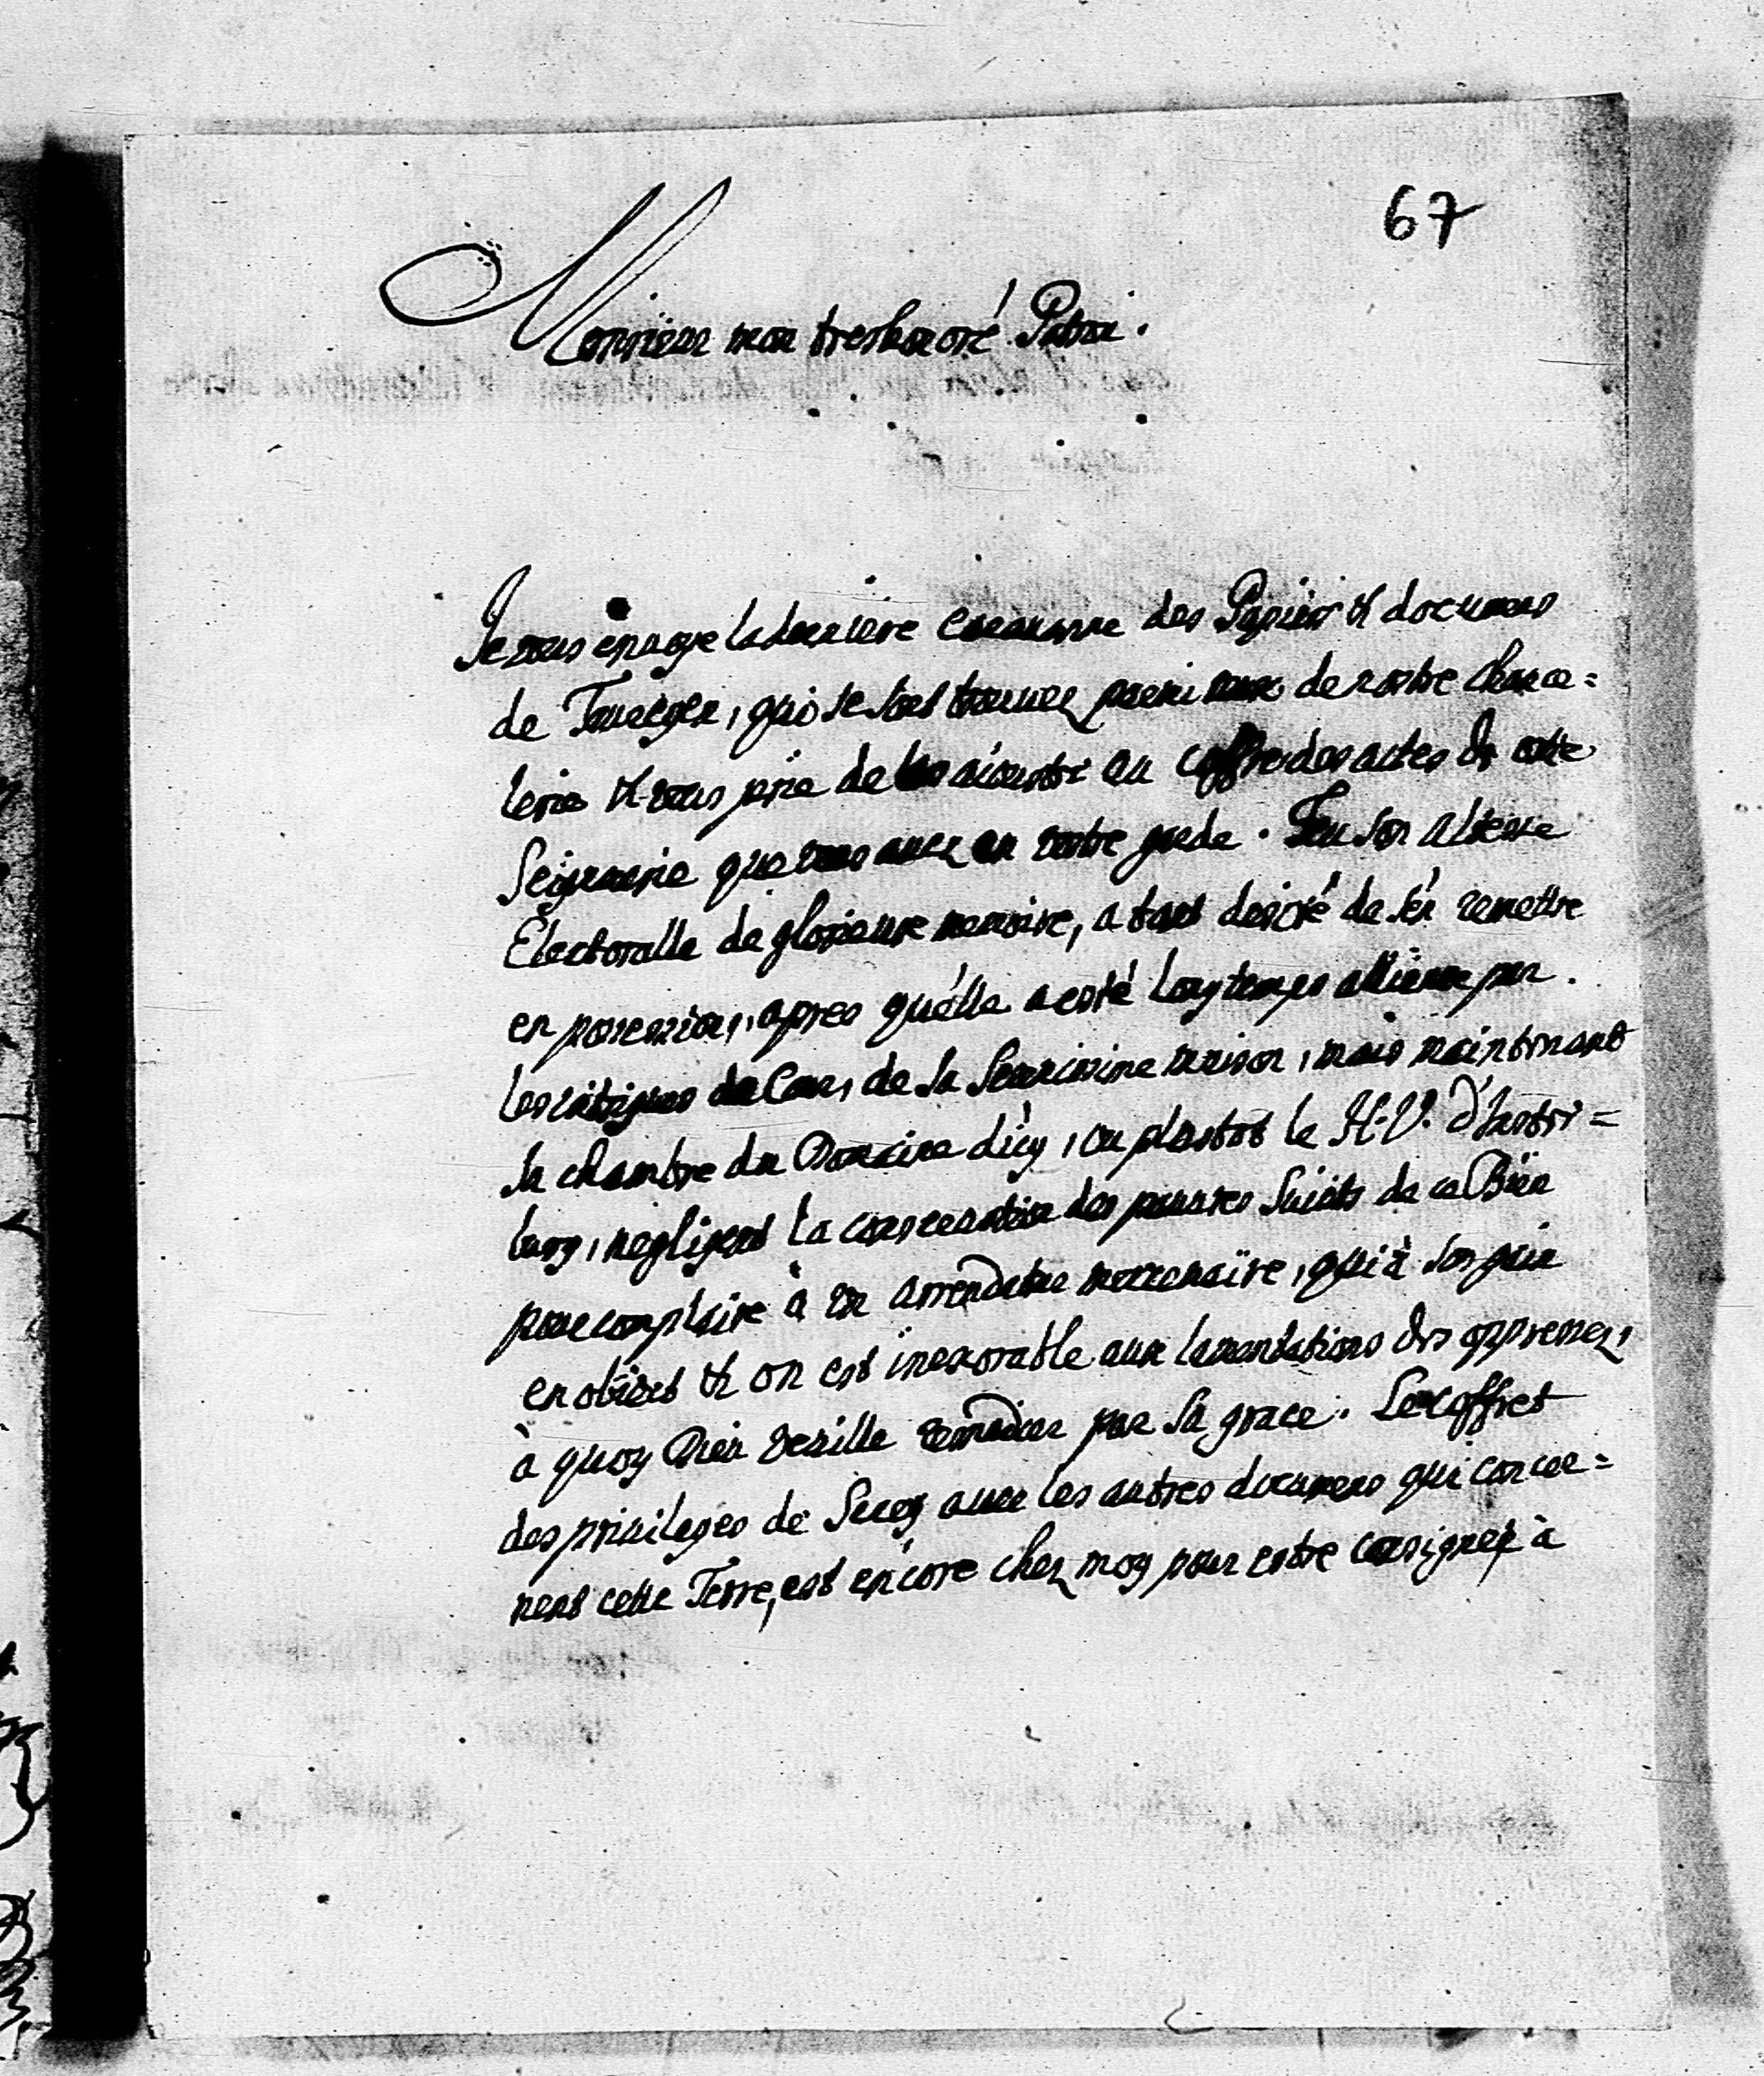 67
Monsieur mon treshonoré Patron.
Je vous envoye la derniere des Papiers & documens
de Tauregen, qui se sont trouvez parmi ceux de nostre chance=
lerie & vous prie de les aiouster au coffre des actes de cette
Seigneurie que vous avez en vostre garde. Feu son Altesse
Electoralle de glorieuse memoire, a tant desiré de s'én remettre
en possession, apres qu'élla a esté longtemps alliénée par
les intrigues de Cour, de sa Serenissime maison, mais maintenant
la chambre du Domaine d'icy, ou plustot le H.V. d'
negligent la conservation des pauvres Suiets de ce Bien
pour complaire à un arrendateur mercenaire, qui à son gain
en obiect & on est inexorable aux lamentations des oppressez,
à quoy Dieu veuille remedier par sa grace. Le coffret
des privileges de Serey avec les autres documens qui concer=
nent cette Terre, est encore chez moy pour estre consignez à